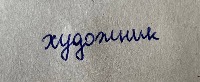 художник